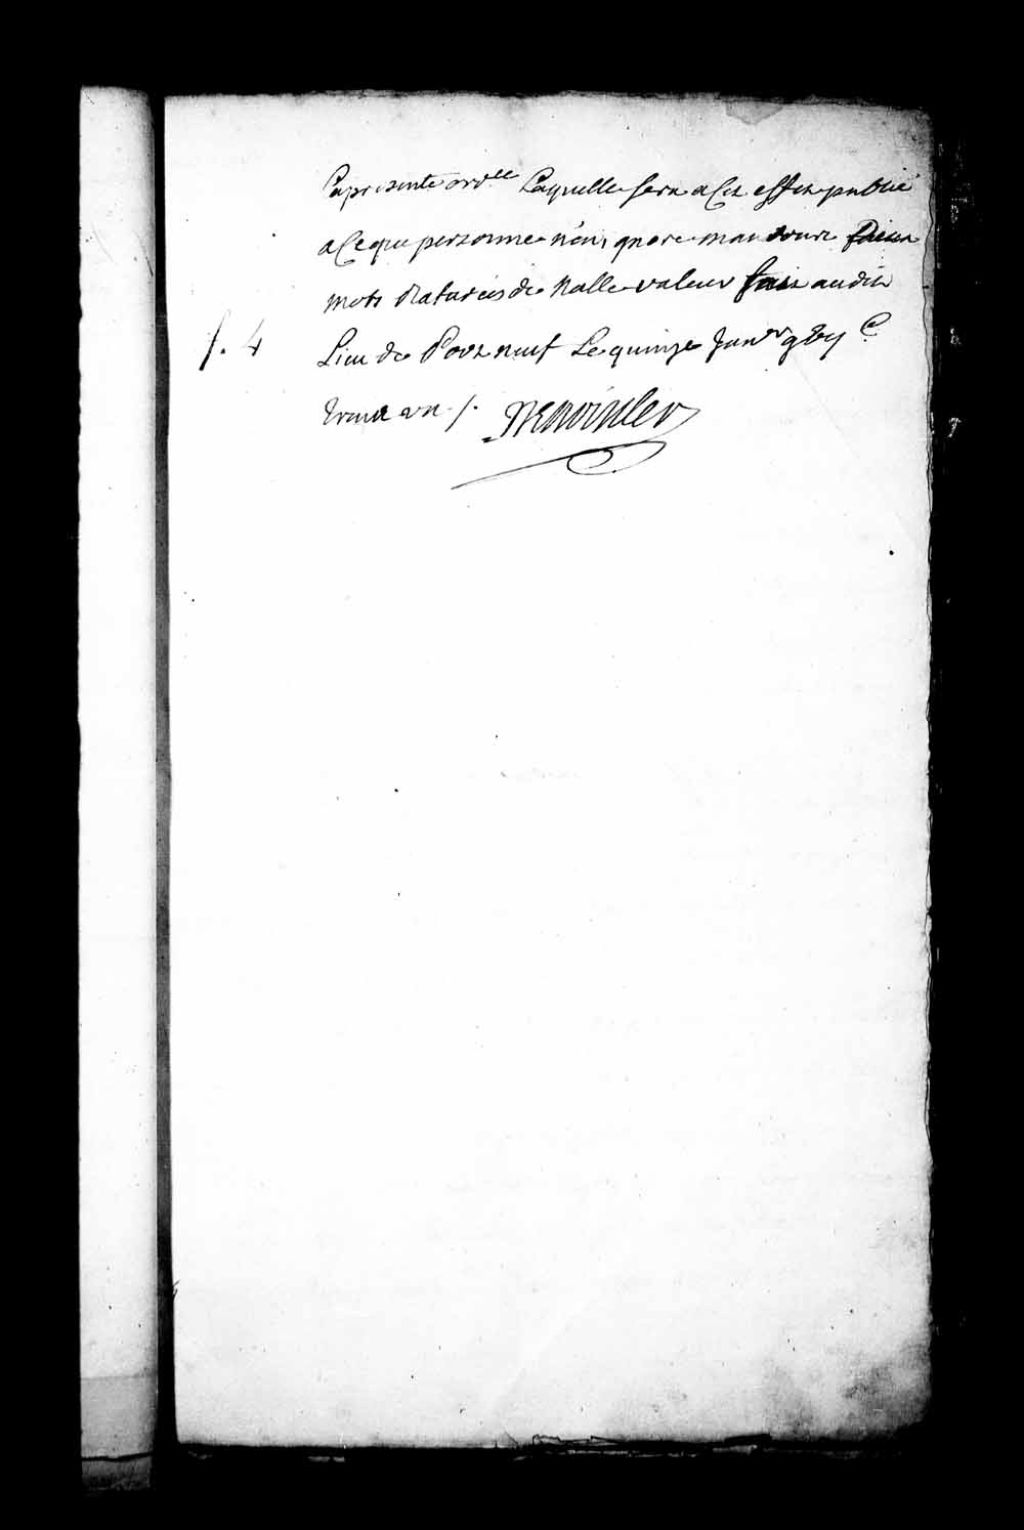 La presente ord.ce Laquelle sera a Cet effet publié
a Ce que personne n'en ignore mandons
mots Raturés de Nulle valeur fait audit
f. 4
Lieu de Portneuf Le quinze Janer
trente un /.